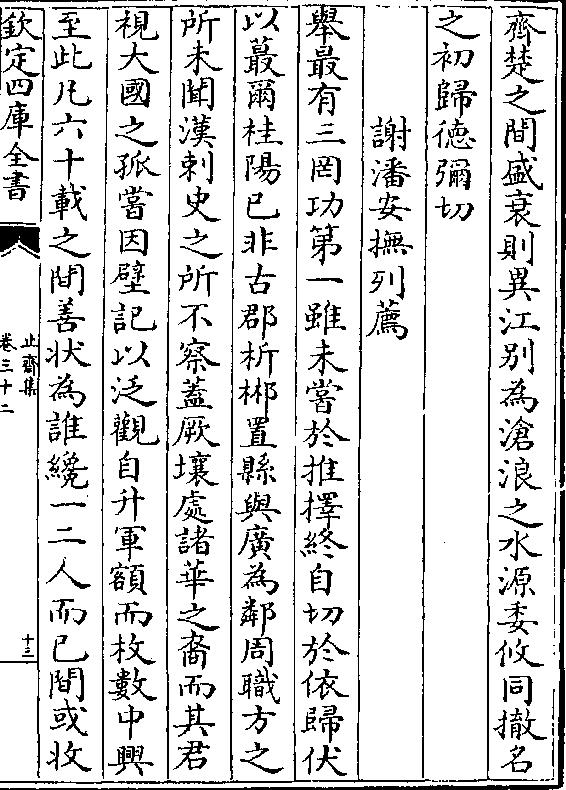 齊楚之間盛衰則異江别為滄浪之水源委攸同撤名
之初歸徳彌切
謝潘安撫列薦
舉最有三罔功第一雖未嘗於推擇終自切於依歸伏
以蕞爾桂陽已非古郡析郴置縣與廣為鄰周職方之
所未聞漢刺史之所不察蓋厥壤處諸華之裔而其君
視大國之孤嘗因壁記以泛觀自升軍額而枚數中興
至此凡六十載之間善状為誰纔一二人而已間或收
欽定四庫全書
止齋集
卷三十二
十三